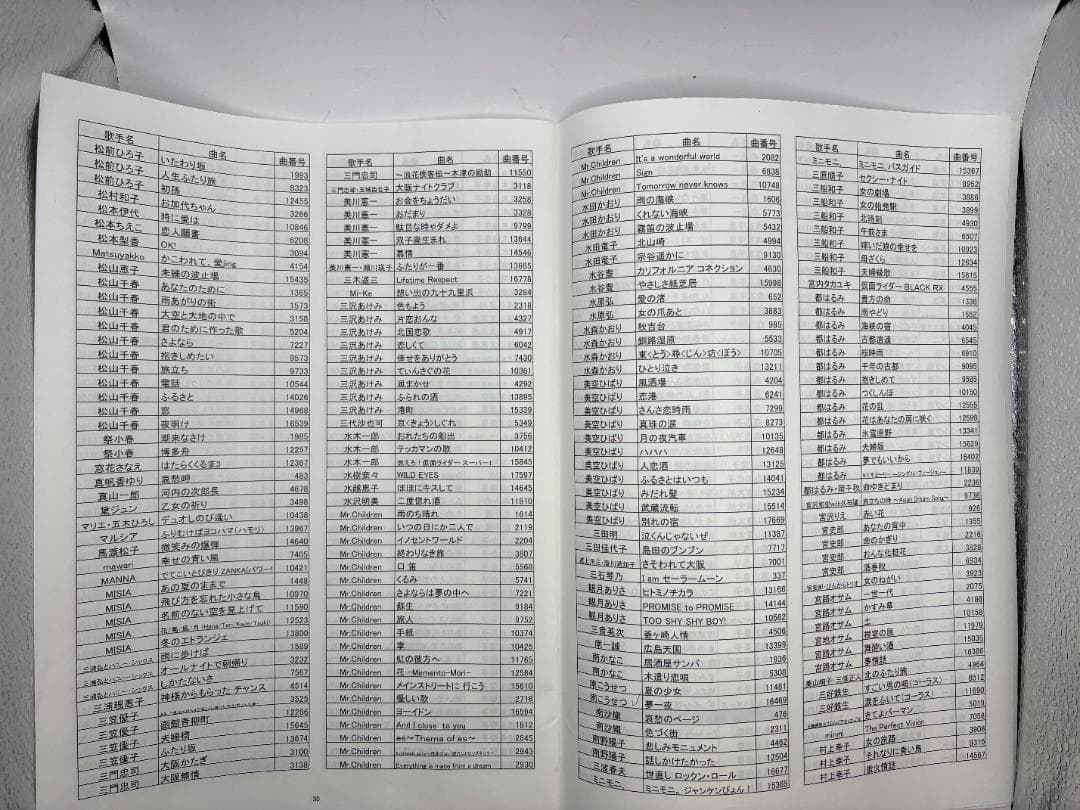 歌手名 曲名 曲番号
松前ひろ子 いたわり坂 1993
松前ひろ子 人生ふたり旅 8323
松前ひろ子 初孫 12455
松村和子 お加代ちゃん 3266
松本伊代 時に愛は 10846
松本ちえこ 恋人願書 6208
松本梨香 OK! 3094
Matsuyakko かこわれて、愛jing 4154
松山恵子 未練の波止場 15435
松山千春 あなたのために 1365
松山千春 雨あがりの街 1573
松山千春 大空と大地の中で 3158
松山千春 君のために作った歌 5204
松山千春 さよなら 7227
松山千春 抱きしめたい 9573
松山千春 旅立ち 9733
松山千春 電話 10544
松山千春 ふるさと 14026
松山千春 窓 14968
松山千春 夜明け 16539
祭小春 潮来なさけ 1985
祭小春 博多舟 12257
窓花さなえ はたらくくるま3 12367
真帆香ゆり 哀愁岬 483
真山一郎 河内の次郎長 4678
黛ジュン 乙女の祈り 3498
マリエ・五木ひろし デュオしのび逢い 10438
マルシア ふりむけばヨコハマ(ハモリ) 13967
馬渡松子 微笑みの爆弾 14640
mawari 幸せの青い風 7405
MANNA でてこいとびきりZENKAIパワー! 10421
MISIA あの夏のままで 1448
MISIA 飛び方を忘れた小さな鳥 10970
MISIA 名前のない空を見上げて 11590
MISIA 花/鳥/風/月 12523
MISIA 冬のエトランジェ 13800
三浦弘とハニー・シックス 雨に歩けば 1589
三浦弘とハニー・シックス オールナイトで朝帰り 3232
三浦弘とハニー・シックス しかたないさ 7567
三浦理恵子 神様からもらったチャンス 4514
三笠優子 3525
三笠優子 函館青柳町 12286
三笠優子 夫婦橋 15645
三笠優子 ふたり坂 13674
三門忠司 大阪かたぎ 3100
三門忠司 大阪無情 3138
歌手名 曲名 曲番号
三門忠司 ～浪花侠客伝～木津の勘助 11550
大阪ナイトクラブ 3118
美川憲一 お金をちょうだい 3258
美川憲一 おだまり 3328
美川憲一 駄目な時ゃダメよ 9799
美川憲一 双子座生まれ 13644
美川憲一 慕情 14546
ふたりが一番 13865
三木道三 Lifetime Respect 16778
Mi-Ke 想い出の九十九里浜 3284
三沢あけみ 色もよう 2318
三沢あけみ 片恋おんな 4327
三沢あけみ 北国恋歌 4917
三沢あけみ 恋しくて 6042
三沢あけみ 倖せをありがとう 7430
三沢あけみ てぃんさぐの花 10361
三沢あけみ 風まかせ 4292
三沢あけみ ふられの酒 13895
三沢あけみ 港町 15339
三代沙也可 京<きょう>しぐれ 5349
水木一郎 おれたちの船出 3756
水木一郎 テッカマンの歌 10412
水木一郎 燃えろ!仮面ライダースーパー1 15845
水樹奈々 WILD EYES 17597
水越恵子 ほほにキスして 14645
水沢明美 二度惚れ酒 11810
Mr.Children 雨のち晴れ 1614
Mr.Children いつの日にか二人で 2119
Mr.Children イノセントワールド 2204
Mr.Children 終わりなき旅 3807
Mr.Children 口笛 5568
Mr.Children くるみ 5741
Mr.Children さよならは夢の中へ 7221
Mr.Children 蘇生 9184
Mr.Children 旅人 9752
Mr.Children 手紙 10374
Mr.Children 幸 10425
Mr.Children 虹の彼方へ 11765
Mr.Children 花 -Memento-Mori- 12584
Mr.Children メインストリートに行こう 15610
Mr.Children 優しい歌 2718
Mr.Children ヨーイドン 16594
Mr.Children And I close to you 1812
Mr.Children es～Thema of es～ 2845
Mr.Children 2943
Mr.Children Everything is made from a dream 2930
歌手名 曲名 曲番号
Mr.Children It's a wonderful world 2082
Mr.Children Sign 6838
Mr.Children Tomorrow never knows 10748
水田かおり 雨の海峡 1606
水田かおり くれない海峡 5773
水田かおり 霧笛の波止場 5432
水田竜子 北山崎 4994
水田竜子 宗谷遥かに 9130
水谷豊 カリフォルニア コネクション 4630
水谷豊 やさしさ紙芝居 15998
水原弘 愛の渚 652
水原弘 女の爪あと 3883
水森かおり 秋吉台 985
水森かおり 釧路湿原 5533
水森かおり 東<とう>尋<じん>坊<ぼう> 10705
水森かおり ひとり泣き 13211
美空ひばり 風酒場 4204
美空ひばり 恋港 6241
美空ひばり さんさ恋時雨 7299
美空ひばり 真珠の涙 8273
美空ひばり 月の夜汽車 10135
美空ひばり ハハハ 12648
美空ひばり 人恋酒 13125
美空ひばり ふるさとはいつも 14041
美空ひばり みだれ髪 15234
美空ひばり 武蔵流転 15514
美空ひばり 別れの宿 17669
三田明 泣くんじゃないぜ 11387
三田佳代子 島田のブンブン 7717
さそわれて大阪 7001
三石琴乃 I am セーラームーン 337
観月ありさ ヒトミノチカラ 13166
観月ありさ PROMISE to PROMISE 14144
観月ありさ TOO SHY SHY BOY! 10562
三音英次 釜ヶ崎人情 4506
南一誠 広島天国 13399
南かなこ 居酒屋サンバ 1936
南かなこ 木遣り恋唄 5308
南こうせつ 夏の少女 11461
南こうせつ 夢一夜 16469
南沙織 哀愁のページ 476
南沙織 色づく街 2311
南野陽子 悲しみモニュメント 4462
南野陽子 話しかけたかった 12504
三波春夫 世直し ロックン・ロール 16677
ミニモニ。 ミニモニ。ジャンケンぴょん! 15365
歌手名 曲名 曲番号
ミニモニ。 ミニモニ バスガイド 15367
三原順子 セクシー・ナイト 8952
三船和子 女の劇場 3888
三船和子 女の始発駅 3899
三船和子 北路剣 4930
三船和子 午前さま 6507
三船和子 嫁いだ娘の幸せを 10923
三船和子 母ざくら 12634
三船和子 夫婦縁歌 15615
宮内タカユキ 仮面ライダー BLACK RX 4555
都はるみ 貴方の命 1336
都はるみ 雨やどり 1552
都はるみ 海峡の宿 4045
都はるみ 古都逍遥 6545
都はるみ 桜時雨 6910
都はるみ 千年の古都 9095
都はるみ 抱きしめて 9585
都はるみ つくしんぼ 10150
都はるみ 花の乱 12555
都はるみ 花はあなたの肩に咲く 12599
都はるみ 氷雪原野 13341
都はるみ 夫婦坂 15629
都はるみ 夢でもいいから 16402
都はるみ 11639
都はるみ・岡千秋 命ゆきどまり 2236
9736
宮沢りえ 赤い花 926
宮史郎 あなたの背中 1355
宮史郎 命のかぎり 2216
宮史郎 おんな化粧花 3828
宮史郎 酒春秋 6924
宮史郎・ぴんからトリオ 女のねがい 3923
宮路オサム 一世一代 2075
宮路オサム かすみ草 4186
宮路オサム 土 10156
宮路オサム 根室の宿 11979
宮路オサム 舞酔い酒 15035
宮路オサム 夢情話 16386
北のふたり旅 4964
三好鉄生 すごい男の唄(コーラス) 8512
三好鉄生 涙をふいて(コーラス) 11690
きてよパーマン 5019
minmi The Perfect Vision 7058
村上幸子 女の旅路 3906
村上幸子 それなりに青い鳥 9315
村上幸子 蛍火情話 14567
30